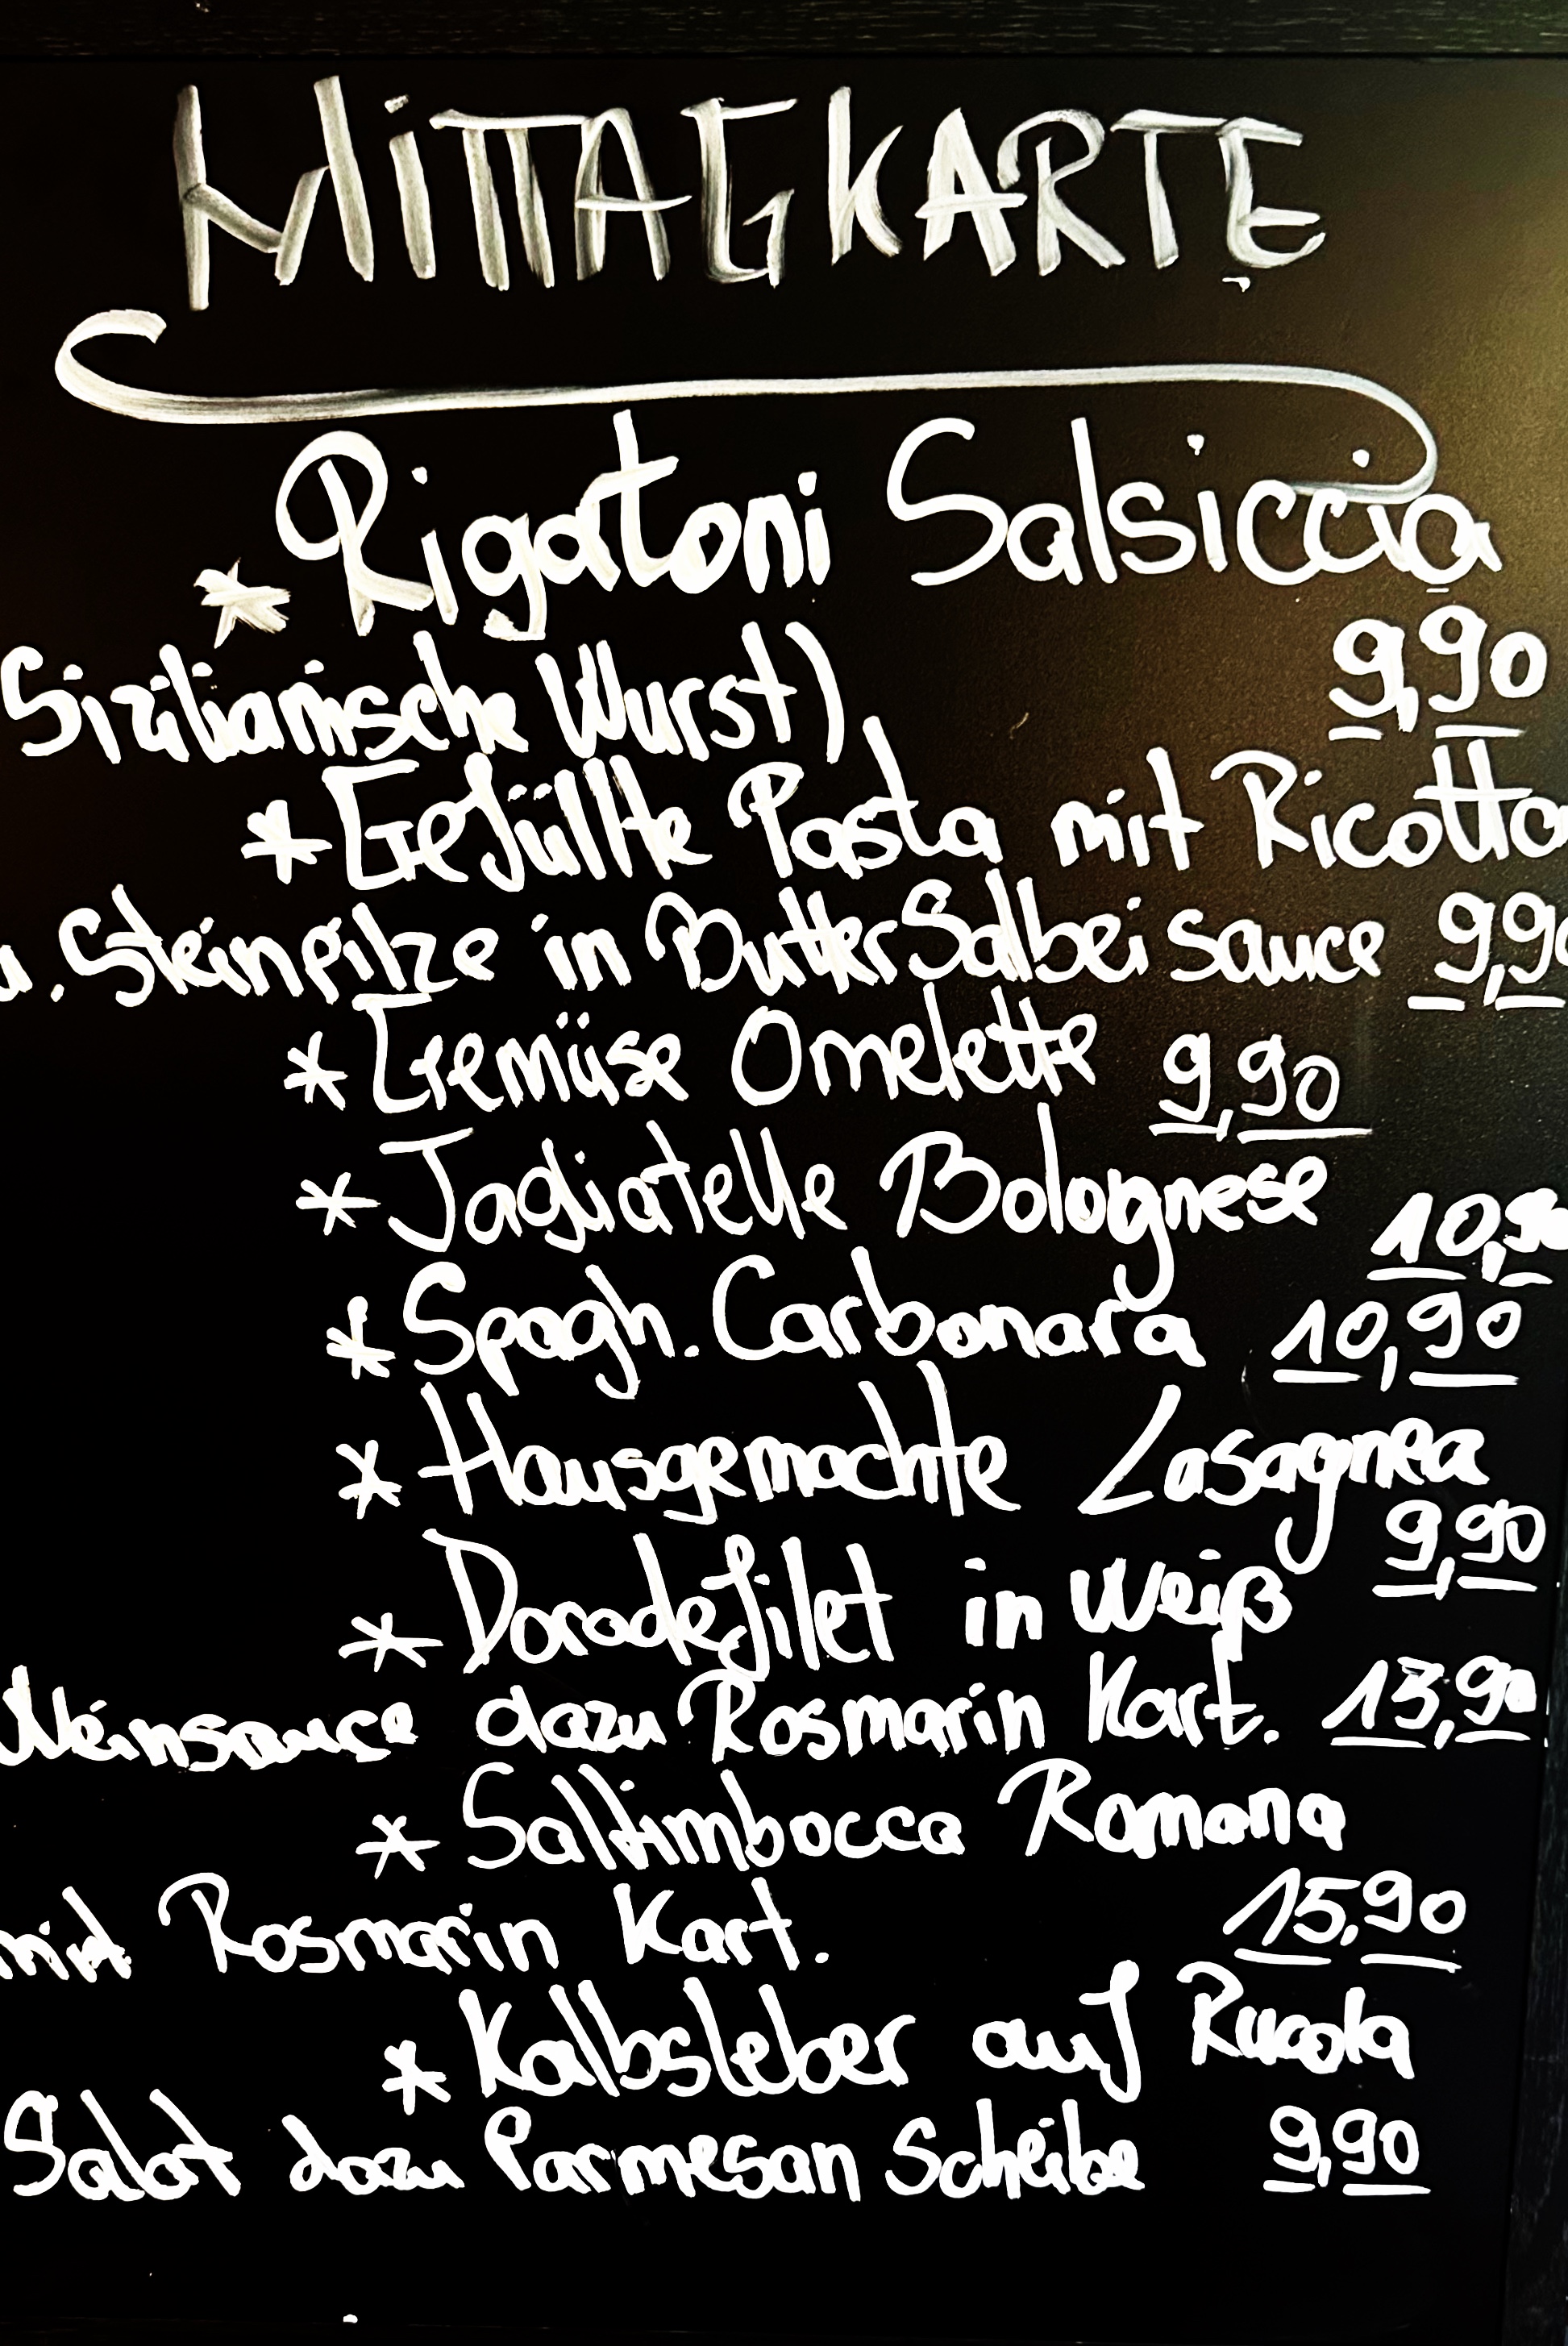 MITTAGKARTE
* Rigatoni Salsiccia
9,90
Sizilianische Wurst)
* Gefüllte Pasta mit Ricotta
u. Steinpilze in Butter Salbei sauce 9,90
* Gemüse Omelette 9,90
* Tagliatelle Bolognese
10,90
* Spagh. Carbonara 10,90
* Hausgemachte Lasagnea
9,90
* Doradefilet in Weiß
Weinsauce dazu Rosmarin Kart. 13,90
* Saltimbocca Romana
mit Rosmarin Kart. 15,90
* Kalbsleber auf Rucola
Salat dazu Parmesan Scheibe 9,90